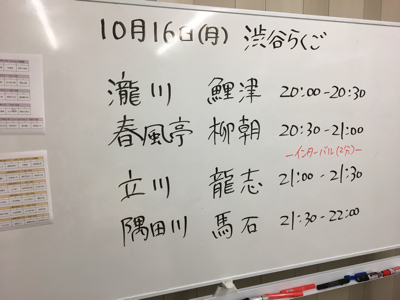 10月16日(月) 渋谷らくご
瀧川 鯉津 20:00-20:30
春風亭 柳朝 20:30-21:00
ーインターバル(2分)ー
立川 龍志 21:00-21:30
隅田川 馬石 21:30-22:00